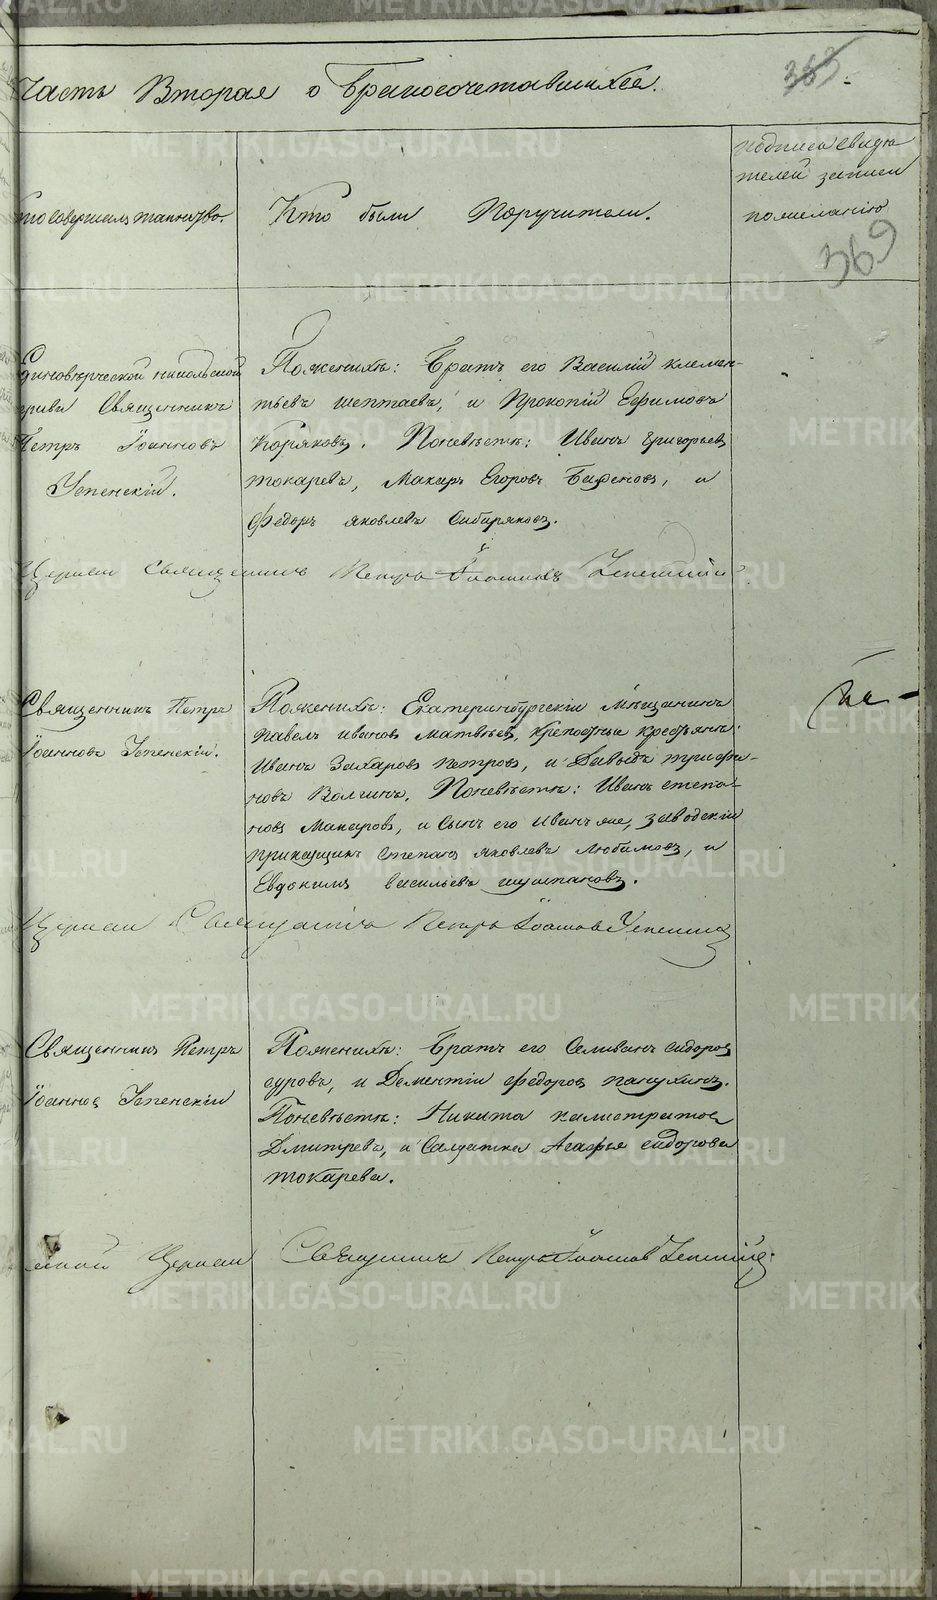 Часть Вторая о Бракосочетавшихся.
363.
кто совершалъ таинство
Кто были Поручители.
подписи свидѣ
телей записи
по желанію
369
Единовѣрческой никольской
церкви Священникъ
Петръ Іоанновъ
Успенскій.
По женихѣ: Братъ его Василій клемен-
тьевъ шептаевъ, и Прокопій Ефимовъ
Коряковъ. По невѣстѣ: Иванъ григорьевъ
токаревъ, Макаръ Егоровъ Бафеновъ, и
Федоръ яковлевъ Сибиряковъ.
Церкви Священникъ Петръ Іоанновъ Успенскій
Священникъ Петръ
Іоанновъ Успенскій.
По женихѣ: Екатеринбургскій Мѣщанинъ
Павелъ ивановъ Матвѣевъ, крепостные крестьяне:
Иванъ Захаровъ петровъ, и Давыдъ трифо-
новъ Волгинъ. По невѣстѣ: Иванъ степа-
новъ Макаровъ, и Сынъ его Иванъ же, заводскій
прикащикъ степанъ яковлевъ Любимовъ, и
Евдокимъ васильевъ
на-
Церкви Священникъ Петръ Іоанновъ Успенскій
Священникъ Петръ
Іоанновъ Успенскій
По женихѣ: Братъ его Селиванъ сидоровъ
суровъ, и Дементій федоровъ панухинъ.
По невѣстѣ: Никита калистратовъ
Дмитревъ, и Солдатка Агафья сидорова
токарева.
Церкви Священникъ Петръ Іоанновъ Успенскій
METRIKI.GASO-URAL.RU